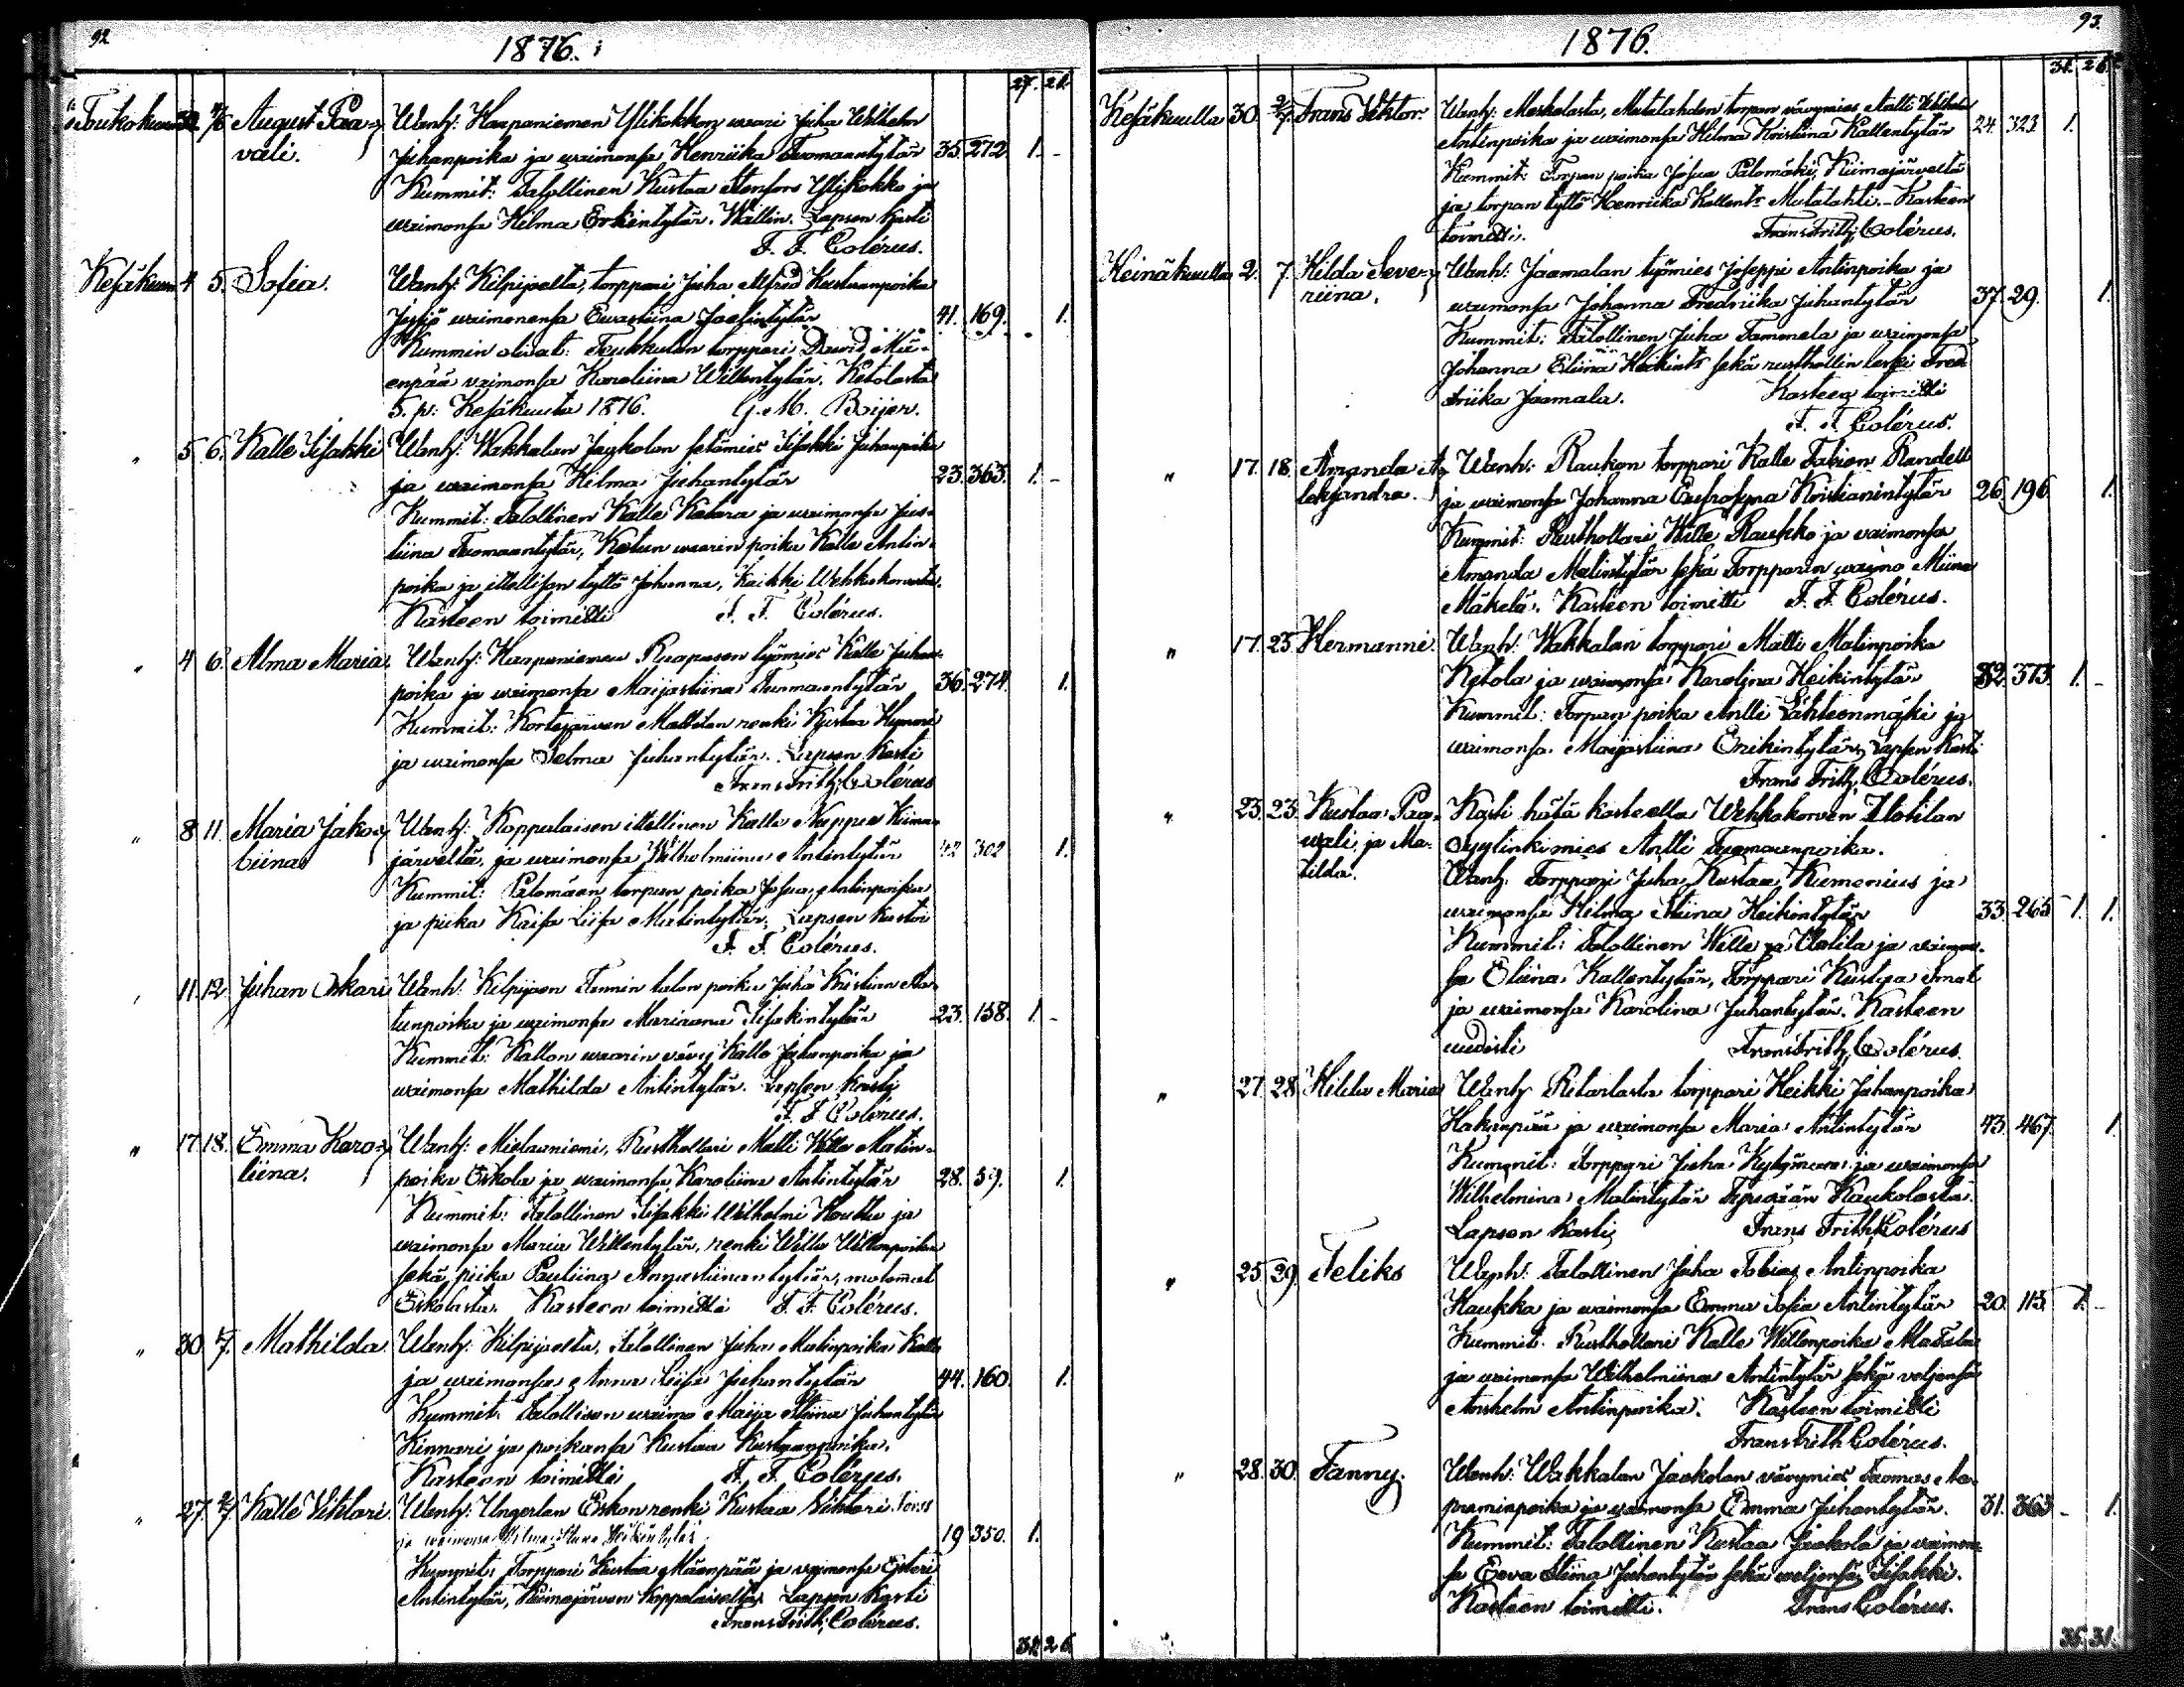 92
1876.
27. 21.
Toukokuun 30 4/6 August Paa-
vali.
Wanh: Haapaniemen Ylikokkon waari Juha Wilhelm
Juhanpoika ja waimonsa Henriika Tuomaantytär 35. 272. 1. -
Kummit: Talollinen Kustaa Stenfors Ylikokko ja
waimonsa Hilma Erkintytär. Wallin. Lapsen kasti
F. F. Colérus.
Kesäkuun 4 5. Sofia.
Wanh: Kilpijoelta, torppari Juha Alfred Kustaanpoika
waimonensa Ewastiina Joelintytär 41. 169. 1.
Kummin olivat: Teukkulan torppari David Mii-
enpää vaimonsa Karoliina Willentytär. Ketolasta
5. p: Kesäkuuta 1876. G. M. Boijer.
" 5. 6. Kalle Iisakki
Wanh: Wakkalan Jaakolan setämies Iisakki Juhanpoika
ja waimonsa Hilma Juhantytär 23. 363. 1. -
Kummit: Talollinen Kalle Katara ja waimonsa Jus-
tiina Tuomaantytär, Katun waarin poika Kalle Antin-
poika ja itellisen tyttö Johanna, Kaikki Wehkakorvesta.
Kasteen toimitti F. F. Colérus.
" 4 6. Alma Maria.
Wanh: Haapaniemen Ruapasen työmies Kalle Juhan-
poika ja waimonsa Maijastiina Tuomaantytär 36. 274. 1.
Kummit: Kortejärven Mattilan renki Kustaa
ja waimonsa Selma Juhantytär. Lapsen kasti
Frans Frith. Colérus
" 8 11. Maria Jako-
biina
Wanh: Koppalaisen itellinen Kalle Nuppu Kiima-
järveltä, ja waimonsa Wilhelmiina Antintytär 42 302 1.
Kummit: Palomäen torpan poika Josua Antinpoika
ja piika Kaisa Liisa Matintytär. Lapsen kastoi
F. F. Colérus.
" 11. 12. Juhan Oskari
Wanh: Kilpijoen Tannin talon poika Juha Kristian Aa-
tunpoika ja waimonsa Mariaana Iisakintytär 23. 158. 1. -
Kummit: Kallon waarin vävy Kalle Juhanpoika ja
waimonsa Mathilda Antintytär. Lapsen kasti
F. F. Colérus.
" 17. 18. Emma Karo-
liina.
Wanh: Mielaaniemi, Rusthollari Matti Wille Matin-
poika Eskola ja waimonsa Karoliina Antintytär 28. 59. 1.
Kummit: Talollinen Iisakki Wilhelmi Houttu ja
waimonsa Maria Willentytär, renki Wille Willenpoika
sekä piika Pauliina Annastiinantytär, molemmat
Eskolasta. Kasteen toimitti F. F. Colérus.
" 30. 1/7. Mathilda
Wanh: Kilpijoelta, Talollinen Juha Matinpoika Kallo
ja waimonsa Anna Liisa Juhantytär 44. 160. 1.
Kummit: Talollisen waimo Maija Stiina Juhantytär
Kinnari ja poikansa Kustaa Kustaanpoika.
Kasteen toimitti F. F. Colérus.
" 27. 2/7 Kalle Viktori.
Wanh: Ungerlan Eskon renki Kustaa Viktori Forss
ja waimonsa Hilma Stiina Heikintytär 19 350. 1.
Kummit: Torppari Kustaa Määnpää ja waimonsa Esteri
Antintytär, Kiimajärven Koppalaiselta. Lapsen kasti
Frans Frith. Colérus.
31. 26.
93.
1876.
31. 26.
Kesäkuulla 30. 2/7. Frans Viktor.
Wanh: Meskalasta, Mutalahden torpan vävymies Antti Wilhelm
Antinpoika ja waimonsa Hilma Kristiina Kallentytär 24. 323 1.
Kummit: Torpan poika Josua Palomäki, Kiimajärveltä
ja torpan tyttö Henriika Kallent: Mutalahti. Kasteen
toimitti. Frans Frith. Colérus.
Heinäkuulla 2. 7. Hilda Seve-
riina.
Wanh: Jaamalan työmies Joseppi Antinpoika ja
waimonsa Johanna Fredriika Juhantytär 37. 29. 1.
Kummit: Talollinen Juha Tammela ja waimonsa
Johanna Eliina Heikint: sekä rusthollin leski Fred-
riika Jaamala. Kasteen toimitti
F. F. Colérus.
" 17. 18. Amanda A-
leksandra.
Wanh: Raukon torppari Kalle Fabian Randell
ja waimonsa Johanna Eufrosyna Kristianintytär 26. 196. 1.
Kummit: Rusthollari Wille Raukko ja vaimonsa
Amanda Matintytär sekä Torpparin waimo Miina
Mäkelä. Kasteen toimitti F. F. Colérus.
" 17. 23. Hermanni.
Wanh: Wakkalan torppari Matti Matinpoika
Ketola ja waimonsa Karoliina Heikintytär 32. 373. 1. -
Kummit: Torpan poika Antti Lähteenmäki ja
waimonsa Maijastiina Enikintytär, Lapsen kasti
Frans Frith. Colérus.
" 23. 23. Kustaa Paa-
wali, ja Ma-
tilda.
Kasti hätä kasteella Wehkakorven Ilotilan
Antti Tuomaanpoika.
Wanh: Torppari Juha Kustaa Kumenius ja
waimonsa Hilma Stiina Heikintytär 33. 265 1. 1.
Kummit: Talollinen Wille ja waimon-
sa Eliina Kallentytär, Torppari Kustaa
ja waimonsa Karolina Juhantytär. Kasteen
uudisti Frans Frith. Colérus.
" 27. 28. Hilda Maria
Wanh: Ritarlasta torppari Heikki Juhanpoika
Hakunpää ja waimonsa Maria Antintytär 43. 467. 1.
Kummit: Torppari Juha ja waimonsa
Wilhelmina Matintytär Kaukolasta.
Lapsen kasti Frans Frith. Colérus
" 25. 29. Feliks
Wanh: Talollinen Juha Tobias Antinpoika
Kaukka ja waimonsa Emma Sofia Antintytär 20. 113. 1. -
Kummit: Rusthollari Kalle Willenpoika Mattala
ja waimonsa Wilhelmiina Antintytär sekä veljensä
Anshelm Antinpoika. Kasteen toimitti
Frans Frith Colérus.
" 28. 30. Fanny.
Wanh: Wakkalan Jaakolan vävymies Tuomas Aa-
praminpoika ja waimonsa Emma Juhantytär. 31. 363 - 1.
Kummit: Talollinen Kustaa Jaakola ja waimon-
sa Eeva Stiina Juhantytär sekä veljensä Iisakki.
Kasteen toimitti. Frans Colérus.
35. 31.